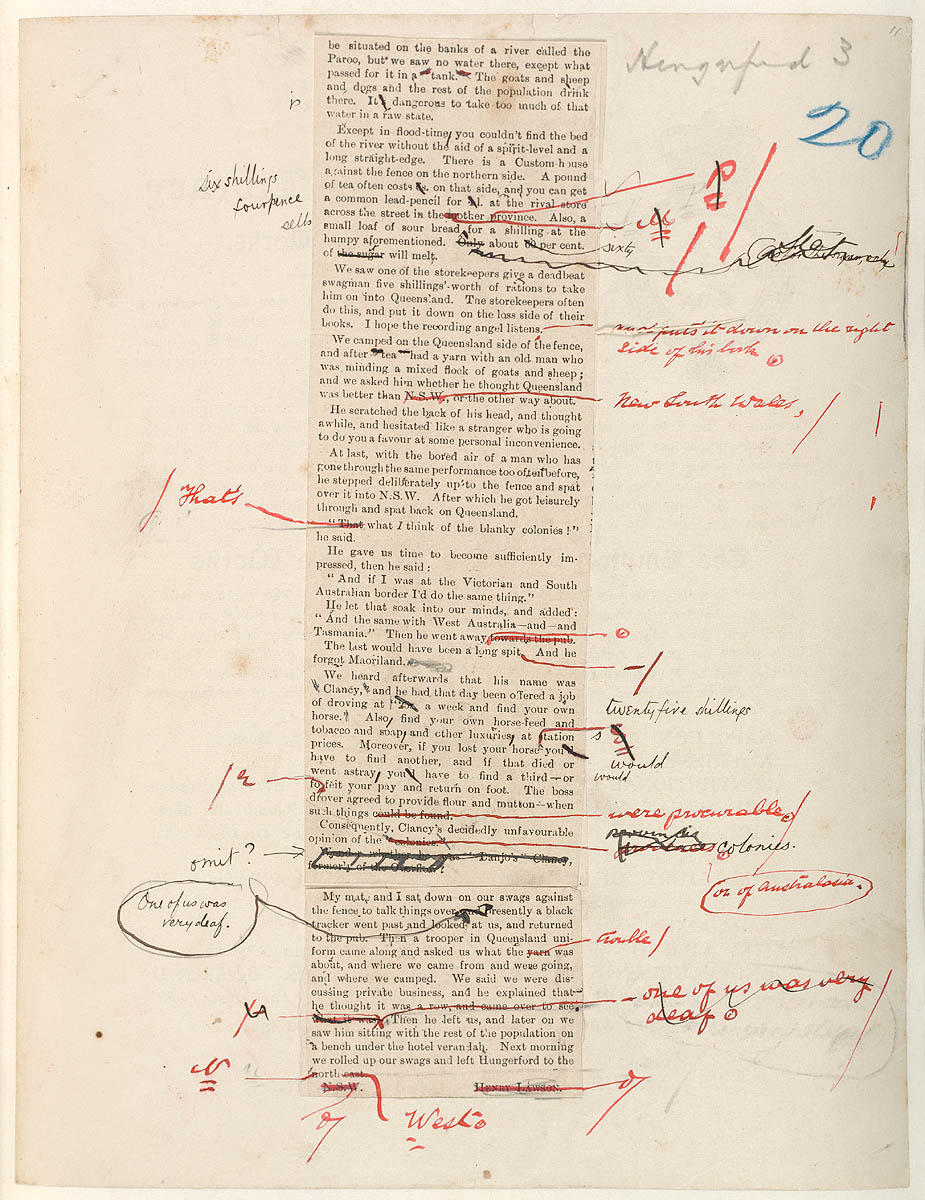 Hungerford 3
20
be situated on the banks of a river called the
Paroo, but we saw no water there, except what
passed for it in a "tank." The goats and sheep
and dogs and the rest of the population drink
there. It's dangerous to take too much of that
water in a raw state.
Except in flood-time you couldn't find the bed
of the river without the aid of a spirit-level and a
long straight-edge. There is a Custom-house
against the fence on the northern side. A pound
of tea often costs on that side, and you can get
a common lead-pencil for at the rival store
across the street in the mother province. Also, a
small loaf of sour bread for a shilling at the
humpy aforementioned. Only about 60 per cent.
of the sugar will melt.
six shillings
fourpence
sells
sixty
We saw one of the storekeepers give a deadbeat
swagman five shillings'-worth of rations to take
him on into Queensland. The storekeepers often
do this, and put it down on the loss side of their
books. I hope the recording angel listens,
and puts it down on the right
side of his book
We camped on the Queensland side of the fence,
and after "tea" had a yarn with an old man who
was minding a mixed flock of goats and sheep;
and we asked him whether he thought Queensland
was better than N.S.W., or the other way about.
New South Wales,
He scratched the back of his head, and thought
awhile, and hesitated like a stranger who is going
to do you a favour at some personal inconvenience.
At last, with the bored air of a man who has
gone through the same performance too often before,
he stepped deliberately up to the fence and spat
over it into N.S.W. After which he got leisurely
through and spat back on Queensland.
That's
"That what I think of the blanky colonies!"
he said.
He gave us time to become sufficiently im-
pressed, then he said:
"And if I was at the Victorian and South
Australian border I'd do the same thing."
He let that soak into our minds, and added:
"And the same with West Australia—and—and
Tasmania." Then he went away towards the pub.
The last would have been a long spit. And he
forgot Maoriland.
We heard afterwards that his name was
"Clancy," and he had that day been offered a job
of droving at a week and find your own
horse." Also, find your own horse-feed and
tobacco and soap, and other luxuries, at station
prices. Moreover, if you lost your horse you'd
have to find another, and if that died or
went astray, you'd have to find a third—or
forfeit your pay and return on foot. The boss
drover agreed to provide flour and mutton—when
such things could be found.
twenty five shillings
s
would
would
were procurable
Consequently, Clancy's decidedly unfavourable
opinion of the "colonies."
provinces
colonies.
or of Australasia.
omit?
One of us was
very deaf.
My mate and I sat down on our swags against
the fence to talk things over, and presently a black
tracker went past and looked at us, and returned
to the pub. Then a trooper in Queensland uni-
form came along and asked us what the yarn was
about, and where we came from and were going,
and where we camped. We said we were dis-
cussing private business, and he explained that
he thought it was a row, and came over to see
what it was. Then he left us, and later on we
saw him sitting with the rest of the population on
a bench under the hotel verandah. Next morning
we rolled up our swags and left Hungerford to the
north-east.
trouble
one of us was very
deaf
N.S.W. HENRY LAWSON.
West